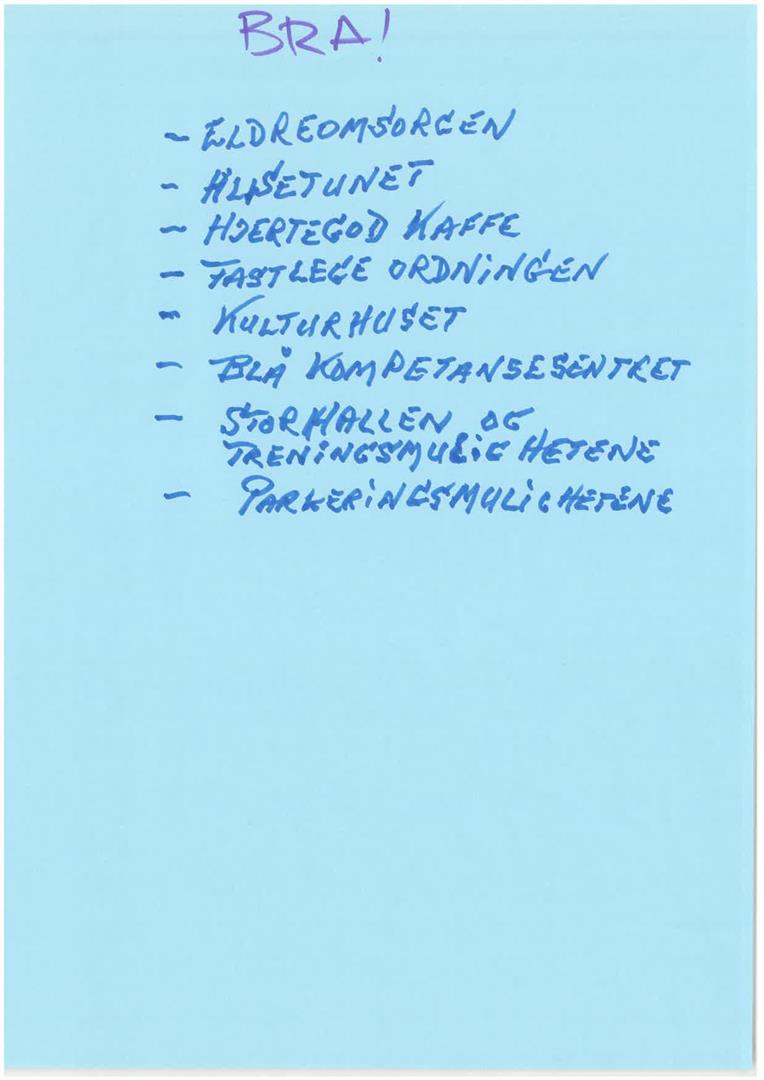 BRA!
- ELDREOMSORGEN
- HLASETUNET
- HJERTEGOD KAFFE
- FASTLEGE ORDNINGEN
- KULTURHUSET
- BLÅ KOMPETANSESENTRET
- STORHALLEN OG
TRENINGSMULIGHETENE
- PARKERINGSMULIGHETENE